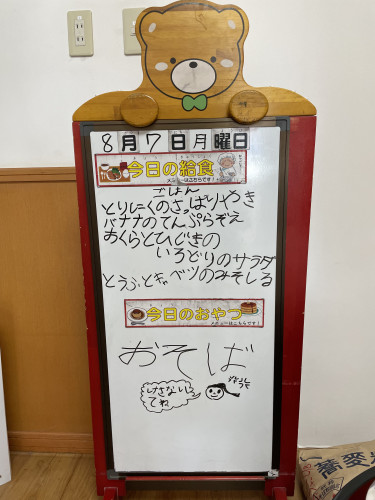 8月7日月曜日
今日の給食
メニューはこちらです!
ごはん
とりにくのさっぱりやき
バナナのてんぷらぞえ
おくらとひじきの
いろどりのサラダ
とうふとキャベツのみそしる
今日のおやつ
メニューはこちらです!
おそば
けさない
でね
蕎麦